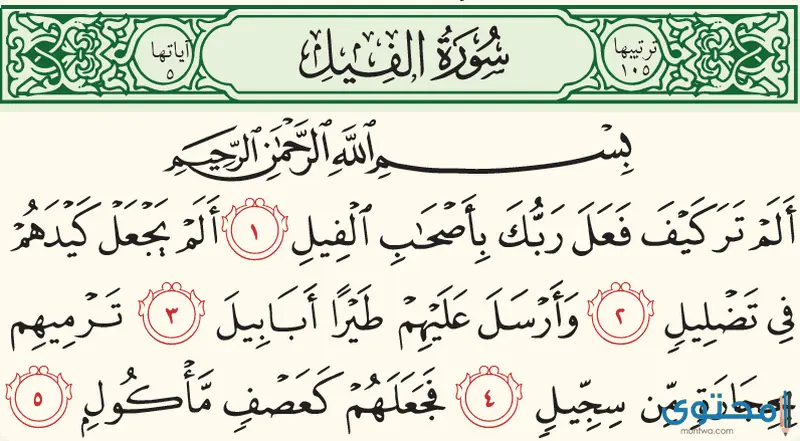 ترتيبها
١٠٥
سُورَةُ الفِيلِ
آياتها
٥
بِسْمِ اللَّهِ الرَّحْمَٰنِ الرَّحِيمِ
أَلَمْ تَرَ كَيْفَ فَعَلَ رَبُّكَ بِأَصْحَٰبِ ٱلْفِيلِ ١ أَلَمْ يَجْعَلْ كَيْدَهُمْ
فِي تَضْلِيلٍ ٢ وَأَرْسَلَ عَلَيْهِمْ طَيْرًا أَبَابِيلَ ٣ تَرْمِيهِم
بِحِجَارَةٍ مِّن سِجِّيلٍ ٤ فَجَعَلَهُمْ كَعَصْفٍ مَّأْكُولٍ ٥
محتوى
muhtwa.com